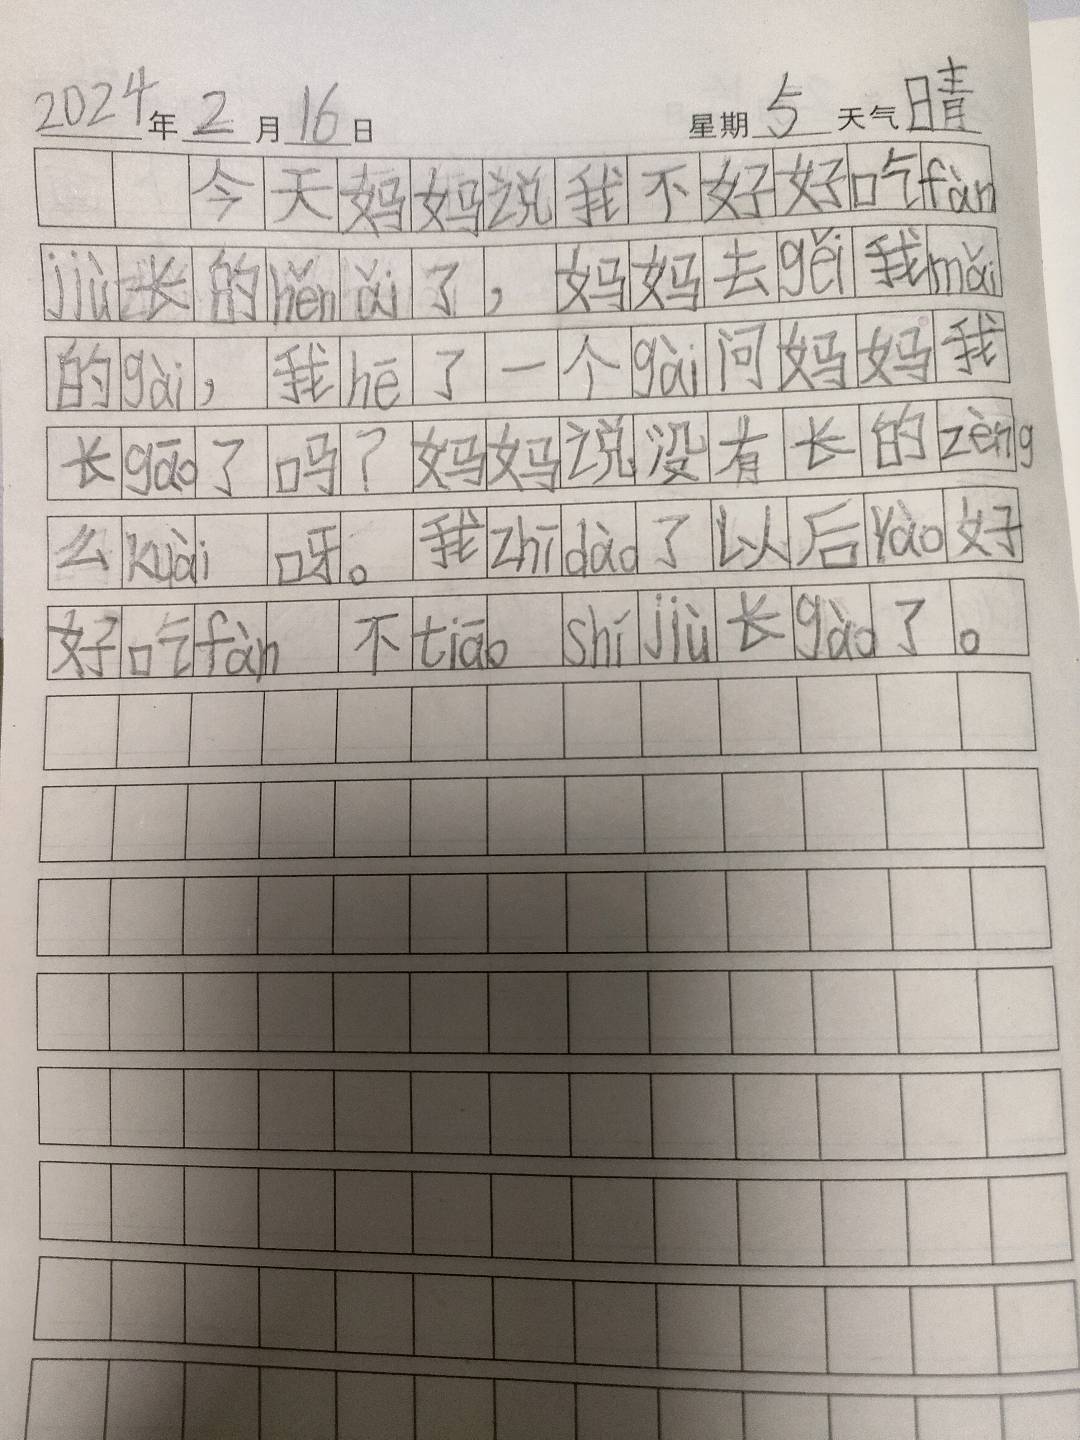 2024年2月16日 星期5天气晴
今天妈妈说我不好好吃fàn
jiù长的hěnǎi了，妈妈去gěi我mǎi
的gài，我hē了一个gài问妈妈我
长gāo了吗？妈妈说没有长的zèng
么kuài呀。我zhīdào了以后yào好
好吃fàn不tiāoshíjiù长gāo了。